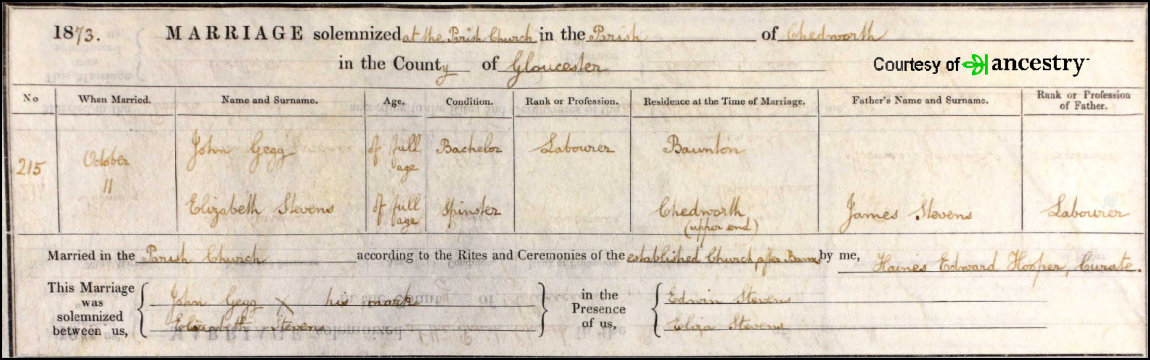 1873. MARRIAGE solemnized at the Parish Church in the Parish of Chedworth
in the County of Gloucester
Courtesy of ancestry
No When Married. Name and Surname. Age. Condition. Rank or Profession. Residence at the Time of Marriage. Father's Name and Surname. Rank or Profession of Father.
215 October 11 John Gegg of full age Bachelor Labourer Baunton
Elizabeth Stevens of full age Spinster Chedworth (upper end) James Stevens Labourer
Married in the Parish Church according to the Rites and Ceremonies of the established Church after Banns by me, Haines Edward Hooper, Curate.
This Marriage was solemnized between us, John Gegg X his mark in the Presence of us, Edwin Stevens
Elizabeth Stevens Eliza Stevens